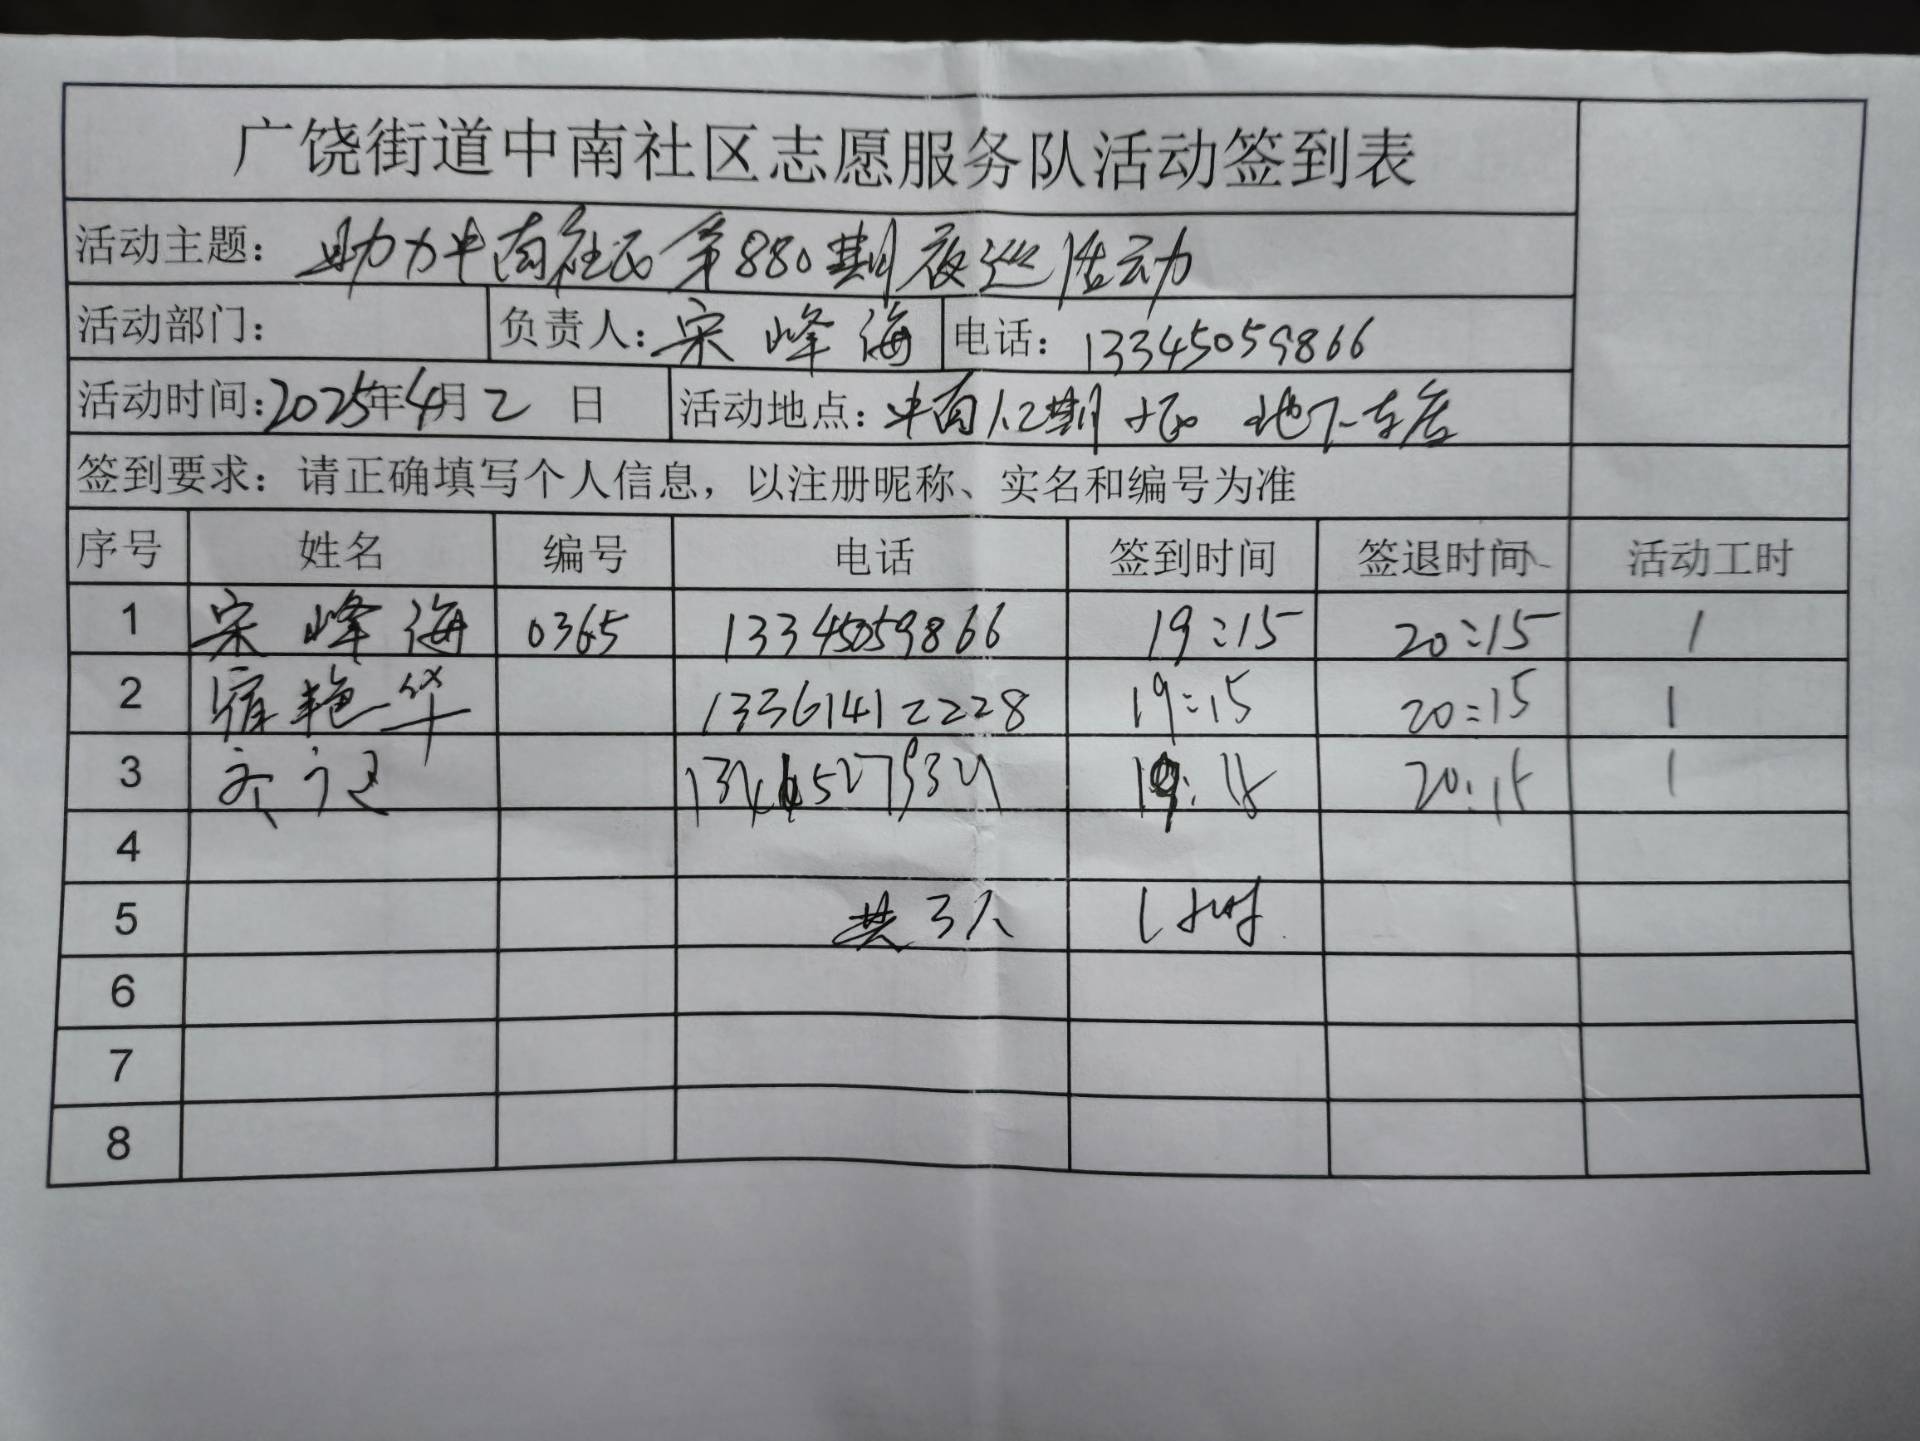 广饶街道中南社区志愿服务队活动签到表
活动主题：助力中南社区第880期夜巡活动
活动部门： 负责人：宋峰海 电话：13345059866
活动时间：2025年4月2日 活动地点：中南1.2期 地下车库
签到要求：请正确填写个人信息，以注册昵称、实名和编号为准
序号 姓名 编号 电话 签到时间 签退时间 活动工时
1 宋峰海 0365 13345059866 19:15 20:15 1
2 宿艳华 13361412228 19:15 20:15 1
3 19:15 20:15 1
4
5 共3人 1小时
6
7
8